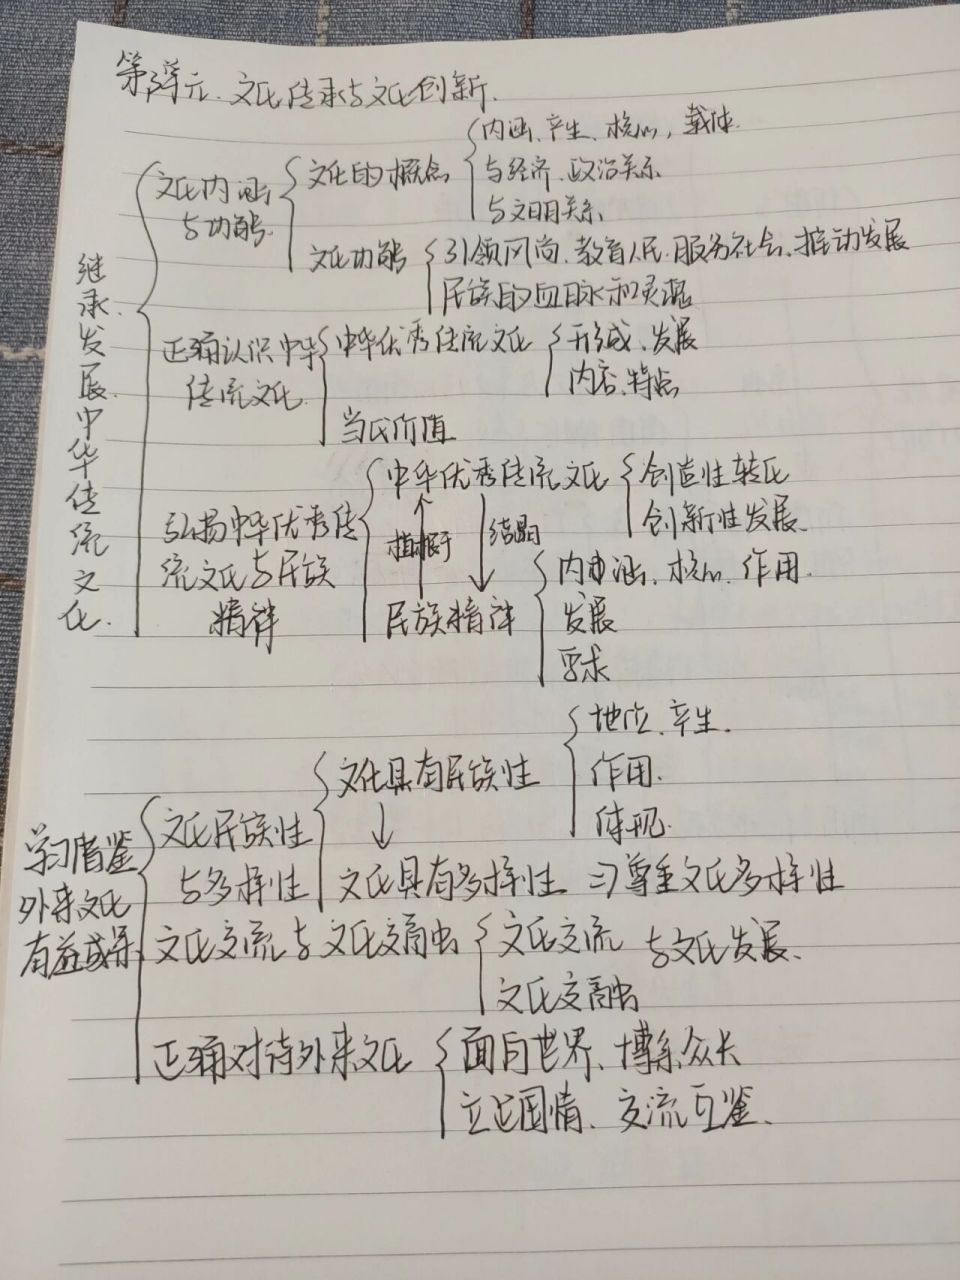 第三单元.文化传承与文化创新.
继承.发展.中华传统文化.
文化内涵
与功能.
文化的概念
内涵、产生、核心，载体.
与经济、政治关系.
与文明关系.
文化功能
引领风尚、教育人民.服务社会、推动发展
民族的血脉和灵魂
正确认识中华
传统文化.
中华优秀传统文化
形成、发展
内容、特点
当代价值
弘扬中华优秀传
统文化与民族
精神
中华优秀传统文化
创造性转化
创新性发展.
植根于
结晶
民族精神
内涵、核心、作用.
发展
要求
学习借鉴
外来文化
有益成果
文化民族性
与多样性
文化具有民族性
地位、产生.
作用.
体现.
文化具有多样性 ⇒尊重文化多样性
文化交流与文化交融
文化交流 与文化发展、
文化交融
正确对待外来文化
面向世界、博采众长
立足国情、交流互鉴、